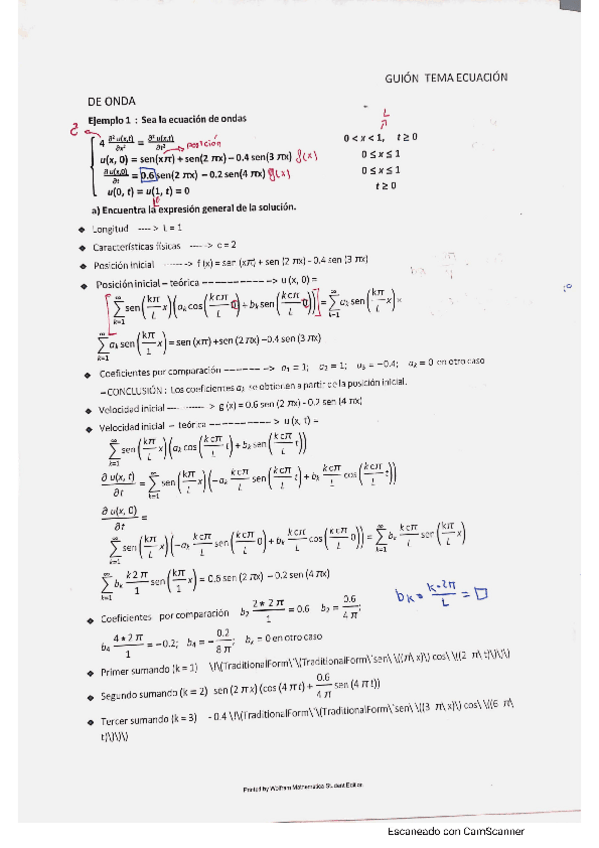 GUIÓN TEMA ECUACIÓN
DE ONDA
Ejemplo 1 : Sea la ecuación de ondas
L
4 ∂² u(x,t)/∂x² = ∂² u(x,t)/∂t² 0 < x < 1, t ≥ 0
posición
u(x, 0) = sen(xπ) + sen(2 πx) − 0.4 sen(3 πx) f(x) 0 ≤ x ≤ 1
∂ u(x,0)/∂t = 0.6 sen(2 πx) − 0.2 sen(4 πx) g(x) 0 ≤ x ≤ 1
u(0, t) = u(1, t) = 0 t ≥ 0
a) Encuentra la expresión general de la solución.
❖ Longitud ----> L = 1
❖ Características físicas -----> c = 2
❖ Posición inicial -------> f (x) = sen (xπ) + sen (2 πx) - 0.4 sen (3 πx)
❖ Posición inicial − teórica −−−−−−−−−−−> u (x, 0) =
∑_{k=1}^{∞} sen(kπ/L x)(a_k cos(k c π/L 0) + b_k sen(k c π/L 0)) = ∑_{k=1}^{∞} a_k sen(kπ/L x)
∑_{k=1}^{∞} a_k sen(kπ/1 x) = sen (πx) +sen (2 πx) −0.4 sen (3 πx)
❖ Coeficientes por comparación −−−−−−−> a₁ = 1; a₂ = 1; a₃ = −0.4; a_k = 0 en otro caso
−CONCLUSIÓN : Los coeficientes a_k se obtienen a partir de la posición inicial.
❖ Velocidad inicial --------> g (x) = 0.6 sen (2 πx) - 0.2 sen (4 πx)
❖ Velocidad inicial − teórica −−−−−−−−−−−> u (x, t) =
∑_{k=1}^{∞} sen(kπ/L x)(a_k cos(k c π/L t) + b_k sen(k c π/L t))
∂ u(x, t)/∂t = ∑_{k=1}^{∞} sen(kπ/L x)(−a_k k c π/L sen(k c π/L t) + b_k k c π/L cos(k c π/L t))
∂ u(x, 0)/∂t =
∑_{k=1}^{∞} sen(kπ/L x)(−a_k k c π/L sen(k c π/L 0) + b_k k c π/L cos(k c π/L 0)) = ∑_{k=1}^{∞} b_k k c π/L sen(kπ/L x)
∑_{k=1}^{∞} b_k k 2 π/1 sen(kπ/1 x) = 0.6 sen (2 πx) − 0.2 sen (4 πx)
b_k = k·2π/L = □
❖ Coeficientes por comparación b₂ 2 * 2 π/1 = 0.6 b₂ = 0.6/4 π;
b₄ 4 * 2 π/1 = −0.2; b₄ = − 0.2/8 π; b_k = 0 en otro caso
❖ Primer sumando (k = 1) \!\(TraditionalForm\`\(TraditionalForm\`sen\ \((π\ x)\) cos\ \((2 π\ t)\)\)\)
❖ Segundo sumando (k = 2) sen (2 π x) (cos (4 π t) + 0.6/4 π sen (4 π t))
❖ Tercer sumando (k = 3) - 0.4 \!\(TraditionalForm\`\(TraditionalForm\`sen\ \((3 π\ x)\) cos\ \((6 π\
t)\)\)\)
Printed by Wolfram Mathematica Student Edition
Escaneado con CamScanner